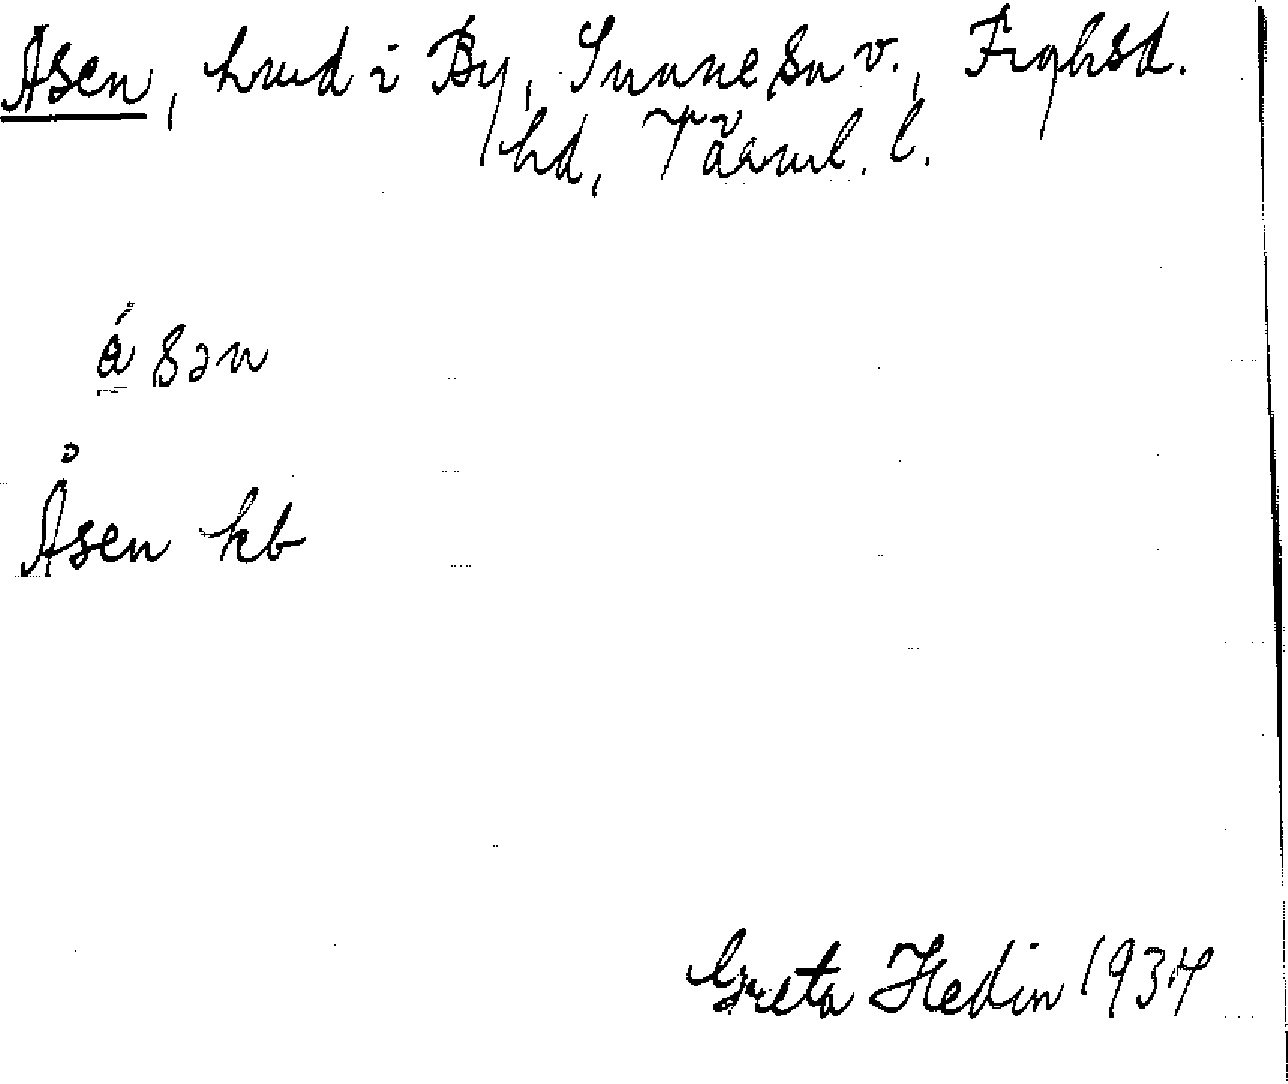 Åsen, hmd i By, Sunne sn v., Fryksd.
hd, Värml. l.
ǻ sən
Åsen kb
Greta Hedin 1934